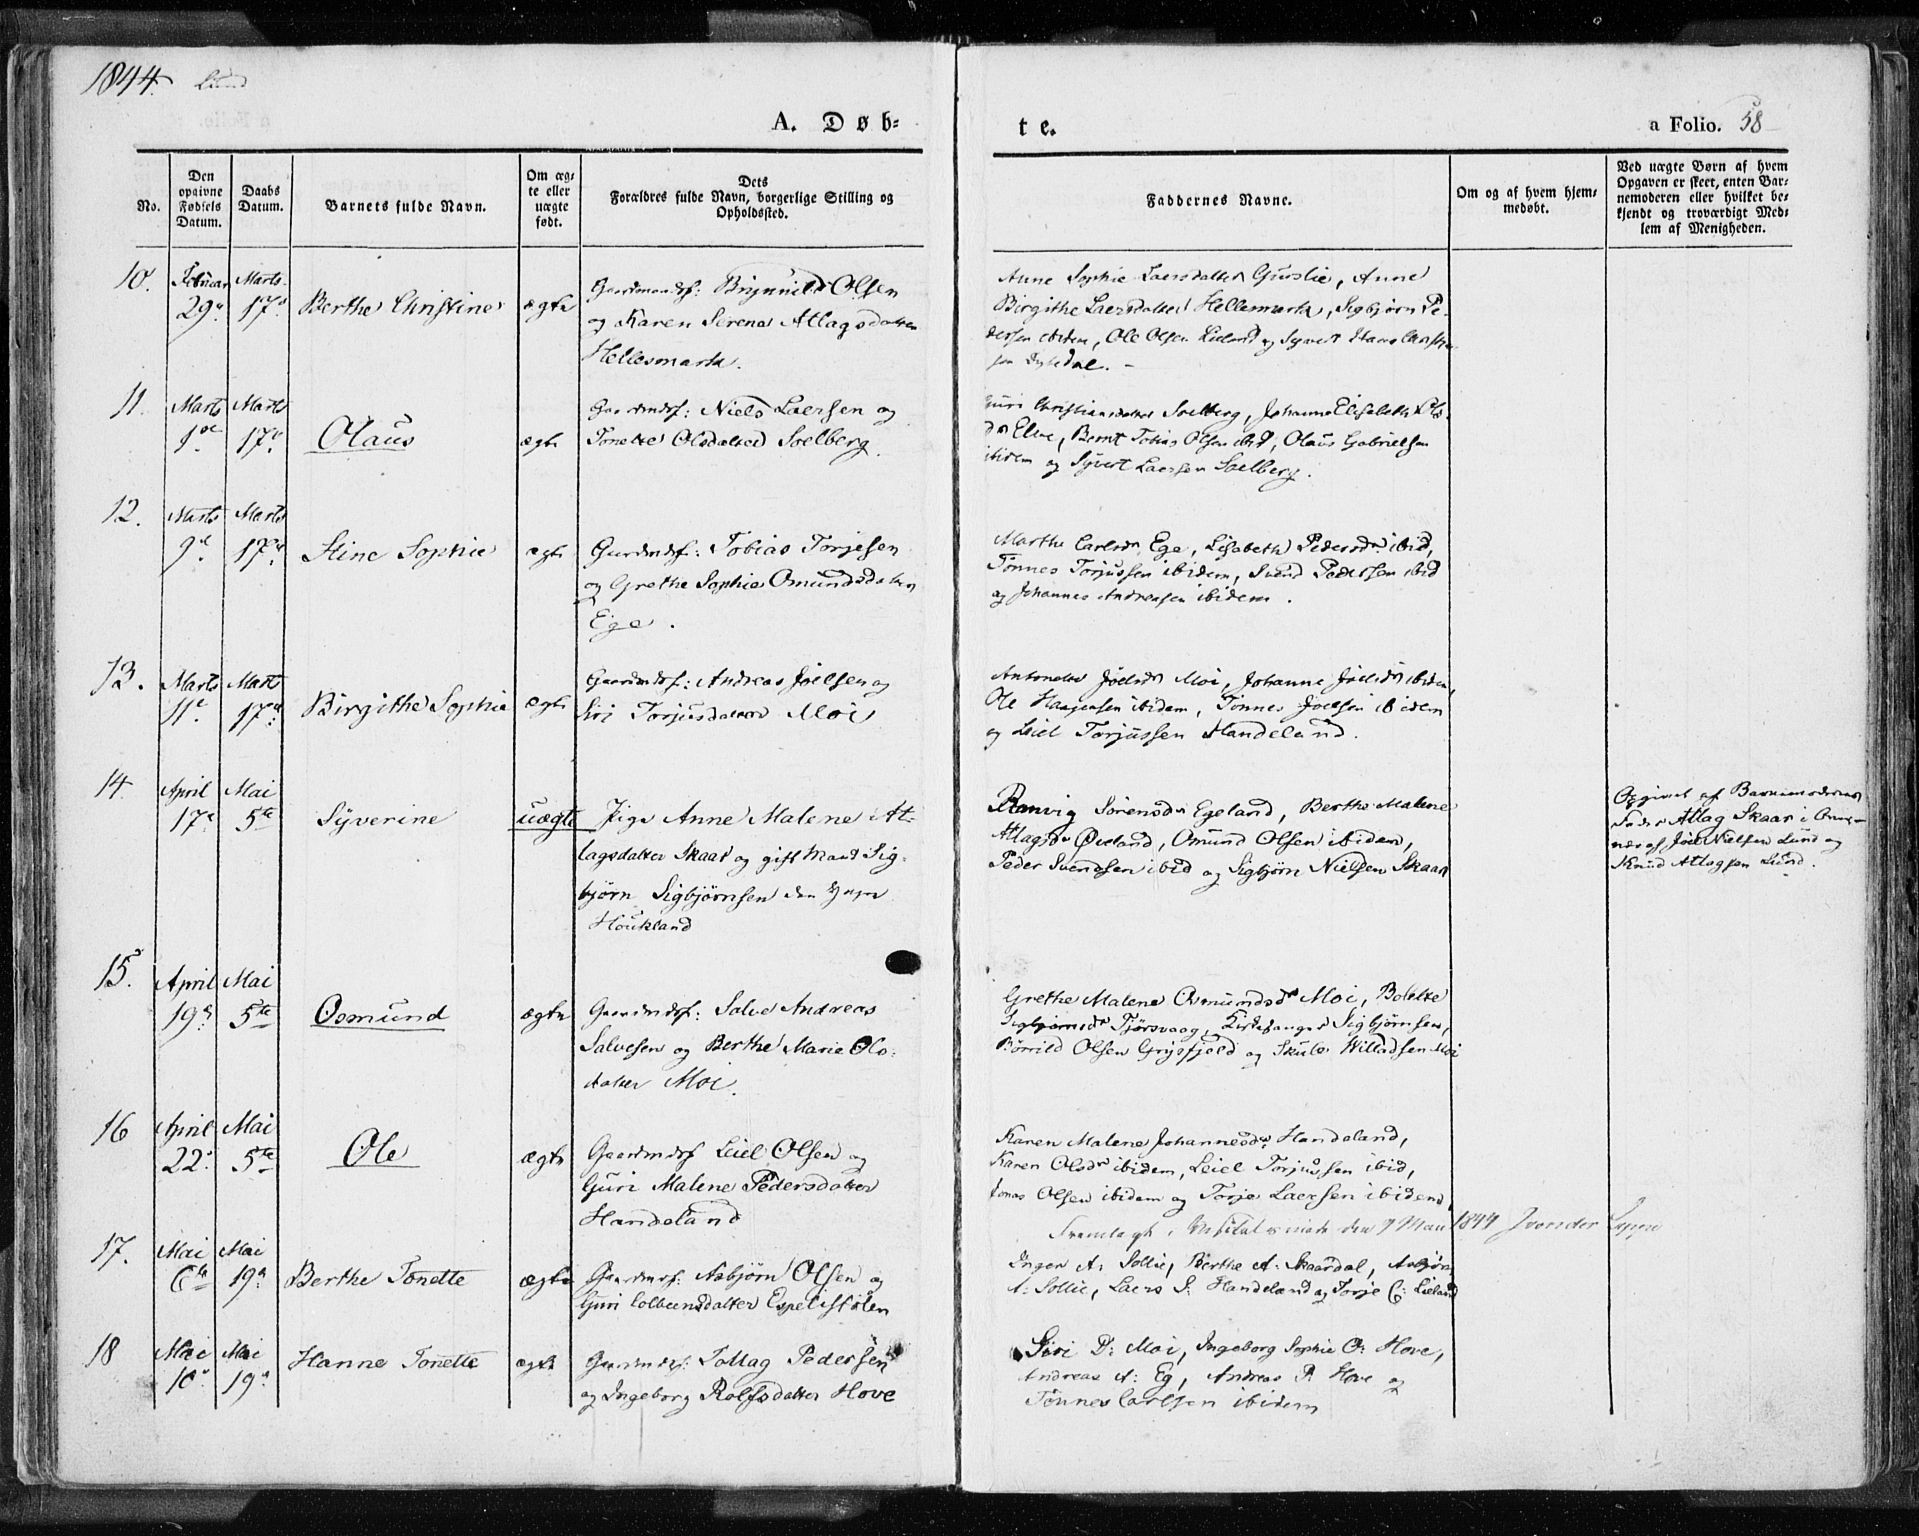 1844. Lund
A. Døb-
te.
a Folio. 58
No.
Den opgivne Fødsels Datum.
Daabs Datum.
Barnets fulde Navn.
Om æg-
te eller
uægte
født.
Dets
Forældres fulde Navn, borgerlige Stilling og
Opholdssted.
Faddernes Navne.
Om og af hvem hjem-
medøbt.
Ved uægte Børn af hvem
Opgaven er skeet, enten Bar-
nemoderen eller hvilket be-
kjendt og troværdigt Med-
lem af Menigheden.
10. Februar 29 Marts 17 Berthe Christine ægte
Gaardmandsf: Olsen
og Karen Serena Atlagsdatter
Hellesmark.
Anne Sophie Laersdatter Gurslie, Anne
Birgithe Laersdatter Hellesmark, Sigbjørn Pe-
dersen ibidem, Ole Olsen Lieland og Syvert Hans Christen-
sen
11. Marts 1 Marts 17 Olaus ægte
Gaardmdsf: Niels Laersen og
Tonette Olsdatter Soelberg.
Guri Christiansdatter Soelberg, Johanne Elisabeth Ols-
dr Elve, Bernt Tobias Olsen ibid, Olaus Gabrielsen
ibidem og Syvert Laersen Soelberg.
12. Marts 9 Marts 17 Stine Sophie ægte
Gardmdsf: Tobias Torjesen
og Grethe Sophie Omundsdatter
Ege.
Marthe Carlsdr Ege, Lisabeth Pedersdr ibid,
Tønnes Torjussen ibidem, Svend Pedersen ibid
og Johannes Andreasen ibidem.
13. Marts 11 Marts 17 Birgithe Sophie ægte
Gaardmdsf: Andreas Joelsen og
Siri Torjusdatter Moi
Antonette Joelsdr Moi, Johanne Joelsdr ibidem,
Ole Haagensen ibidem, Tønnes Joelsen ibidem
og Leiel Torjussen Handeland.
14. April 17 Mai 5te Syverine uægte
Pige Anne Malene At-
lagsdatter Skaar og gift Mand Sig-
bjørn Sigbjørnsen den yngre
Houkland
Ranvig Sørensdr Egeland, Berthe Malene
Atlagsdr Øieland, Omund Olsen ibidem,
Peder Svendsen ibid og Sigbjørn Nielsen Skaar
Opgivet af Barnemoderens
Fader Atlag Skaar i Over-
vær af Joel Nielsen Lund og
Knud Atlagsen Lund.
15. April 19 Mai 5te Osmund ægte
Gaardmdsf: Salve Andreas
Salvesen og Berthe Marie Ols-
datter Moi.
Grethe Malene Osmundsdr Moi, Bolette
Sigbjørnsdr Tjørsvaag, Kirkesanger Sigbjørnsen,
Børrild Olsen Grysfjeld og Skule Willadsen Moi
16 April 22 Mai 5te Ole ægte
Gaardmdsf Leiel Olsen og
Guri Malene Pedersdatter
Handeland
Karen Malene Johannesdr Handeland,
Karen Olsdr ibidem, Leiel Torjussen ibid,
Jonas Olsen ibidem og Torje Laersen ibidem
1844
17. Mai 6te Mai 19 Berthe Tonette ægte
Gaardmdsf: Asbjørn Olsen og
Guri Colbeensdatter Espelistølen
Inger A: Sollie, Berthe A: Skaardal, Asbjørn
A: Sollie, Laers S: Handeland og Torje C: Lieland
18 Mai 10 Mai 19 Hanne Tonette ægte
Gaardmdsf: Tollag Pedersen
og Ingeborg Rolfsdatter Hove
Siri D: Moi, Ingeborg Sophie O: Hove,
Andreas A: Eg, Andreas P. Hove og
Tønnes Carlsen ibidem